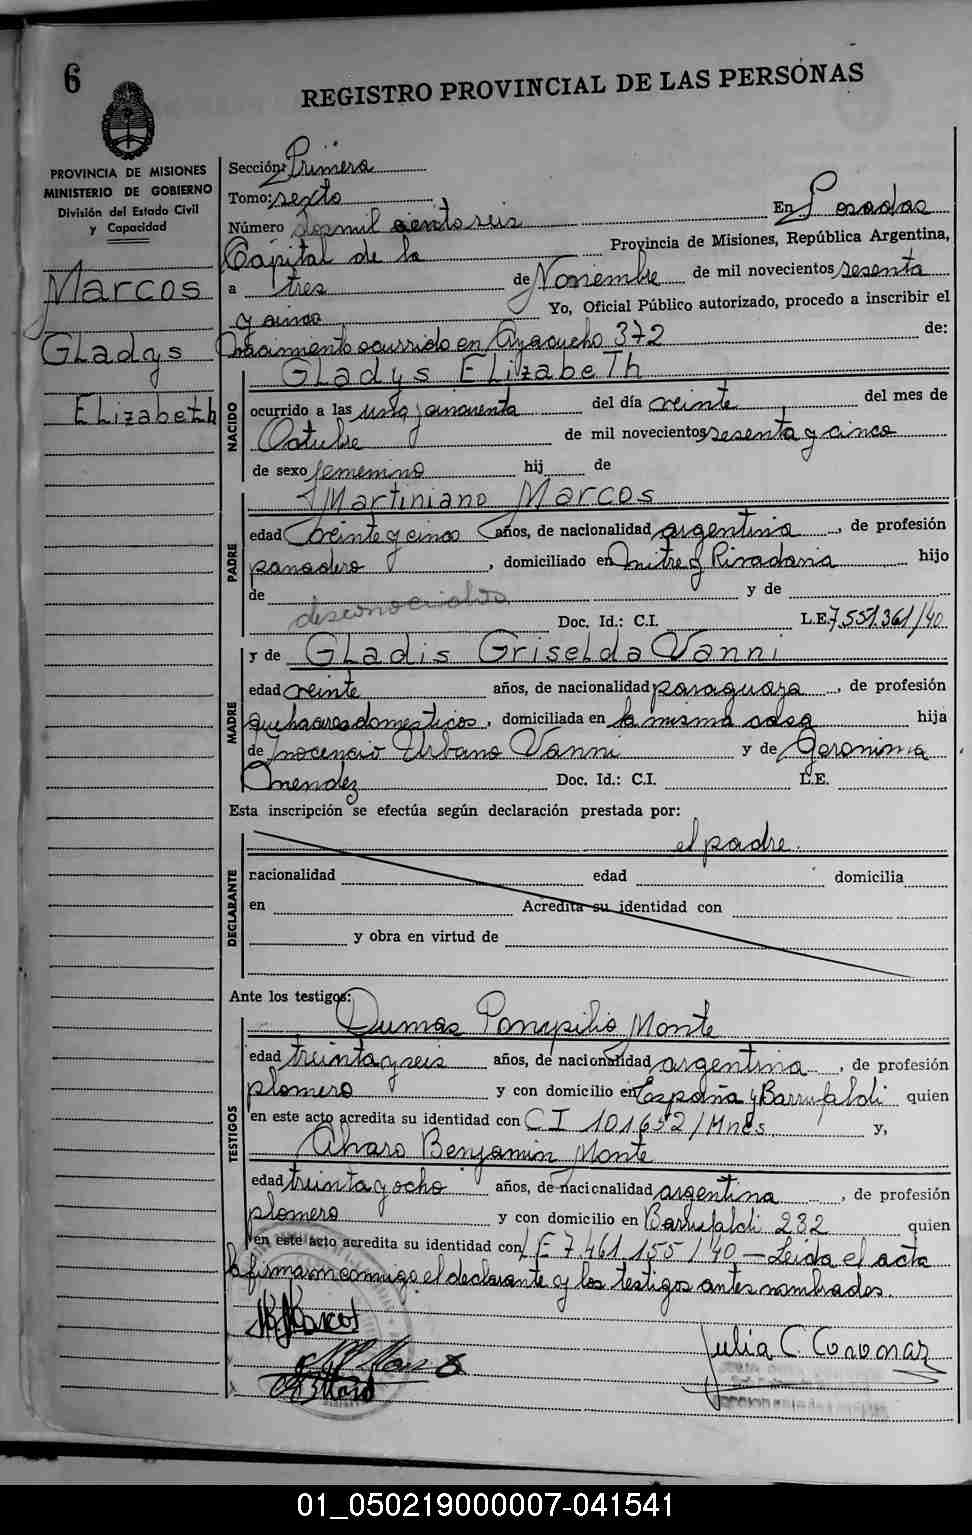 6
REGISTRO PROVINCIAL DE LAS PERSONAS
PROVINCIA DE MISIONES
MINISTERIO DE GOBIERNO
División del Estado Civil
y Capacidad
Marcos
Gladys
Elizabeth
Sección: Primera
Tomo: sexto
Número dosmil ciento seis En Posadas
Capital de la Provincia de Misiones, República Argentina,
a tres de Noviembre de mil novecientos sesenta
y cinco Yo, Oficial Público autorizado, procedo a inscribir el
nacimiento ocurrido en Ayacucho 372 de:
NACIDO
Gladys Elizabeth
ocurrido a las una y cuarenta del día veinte del mes de
Octubre de mil novecientos sesenta y cinco
de sexo femenino hij de
PADRE
Martiniano Marcos
edad veinte y cinco años, de nacionalidad argentina, de profesión
panadero, domiciliado en mitre y Rivadavia hijo
de desconocidos y de
Doc. Id.: C.I. L.E. 7.551.361/40
MADRE
y de Gladis Griselda Vanni
edad veinte años, de nacionalidad paraguaya, de profesión
quehaceres domesticos, domiciliada en la misma casa hija
de Inocencio Urbano Vanni y de Geronima
mendez Doc. Id.: C.I. L.E.
Esta inscripción se efectúa según declaración prestada por:
DECLARANTE
el padre.
racionalidad edad domicilia
en Acredita su identidad con
y obra en virtud de
Ante los testigos:
TESTIGOS
Dumas Pompilio Monte
edad treinta y seis años, de nacionalidad argentina, de profesión
plomero y con domicilio en España y Barrufaldi quien
en este acto acredita su identidad con C I 101.652/Mnes y,
Alvaro Benjamin Monte
edad treinta y ocho años, de nacionalidad argentina, de profesión
plomero y con domicilio en Barrufaldi 282 quien
en este acto acredita su identidad con L E 7.461.155/40 - Leida el acta
la firman conmigo el declarante y los testigos antes nombrados.
Julia C. Coronar
01_050219000007-041541